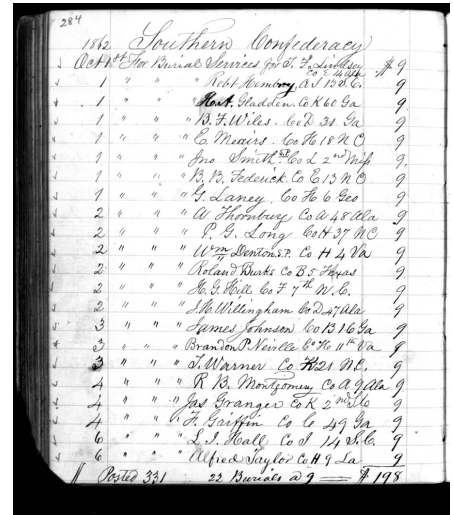 284
1862 Southern Confederacy
Oct 1st For Burial Services for T. F. Lindsey Co E 14 Ala $ 9
1 " " " Robt Hembry, A I 13 S. C. 9
1 " " " H. A. Gladden Co K 60 Ga 9
1 " " " B. F. Wiles. Co D 31 Ga 9
1 " " " E. Meairs. Co H 18 N C 9
1 " " " Jno Smith S.P. Co L 2nd Miss 9
1 " " " B. B. Federick Co E 13 N C 9
1 " " " G. Laney Co H 6 Geo 9
2 " " " A Thornbury Co A 48 Ala 9
2 " " " P. G. Long Co H 37 N C 9
2 " " " Wm Denton S.P. Co H 4 Va 9
2 " " " Roland Burks Co B 5 Texas 9
2 " " " H. G. Hill Co F 7th N. C. 9
2 " " " J. H. Willingham Co D 47 Ala 9
3 " " " James Johnson Co B 16 Ga 9
3 " " " Brandon P. Neville Co H 11th Va 9
3 " " " T. Warner Co K 21 N. C. 9
4 " " " R B. Montgomery Co A 9 Ala 9
4 " " " Jas Granger Co K 2nd 9
4 " " " F. Gaiffin Co C 49 Ga 9
6 " " " L. I. Hall Co I 14 S. C. 9
6 " " " Alfred Taylor Co H 9 La 9
Posted 331 22 Burials a 9 $ 198